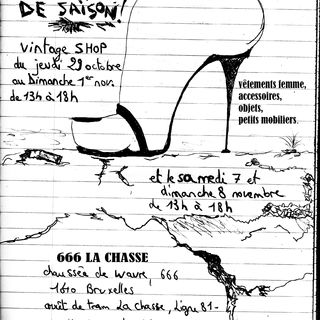 DE SAISON!
vintage SHOP
du jeudi 29 octobre
au Dimanche 1er nov.
de 13h à 18h
vêtements femme,
accessoires,
objets,
petits mobiliers.
et le samedi 7 et
dimanche 8 novembre
de 13h à 18h
666 LA CHASSE
chaussée de wavre, 666
1610 Bruxelles
arrêt de tram La chasse, Ligne 81-